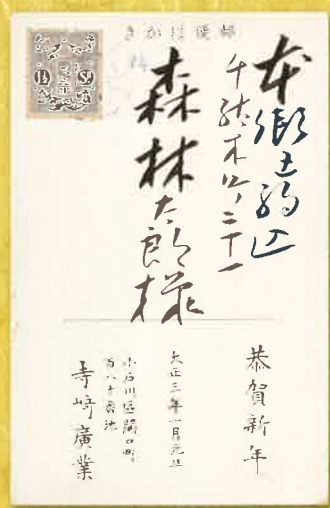 郵便はかき
本郷区駒込
千駄木町二十一
森林太郎様
恭賀新年
大正三年一月元旦
小石川區關口町
百八十番地
寺崎廣業